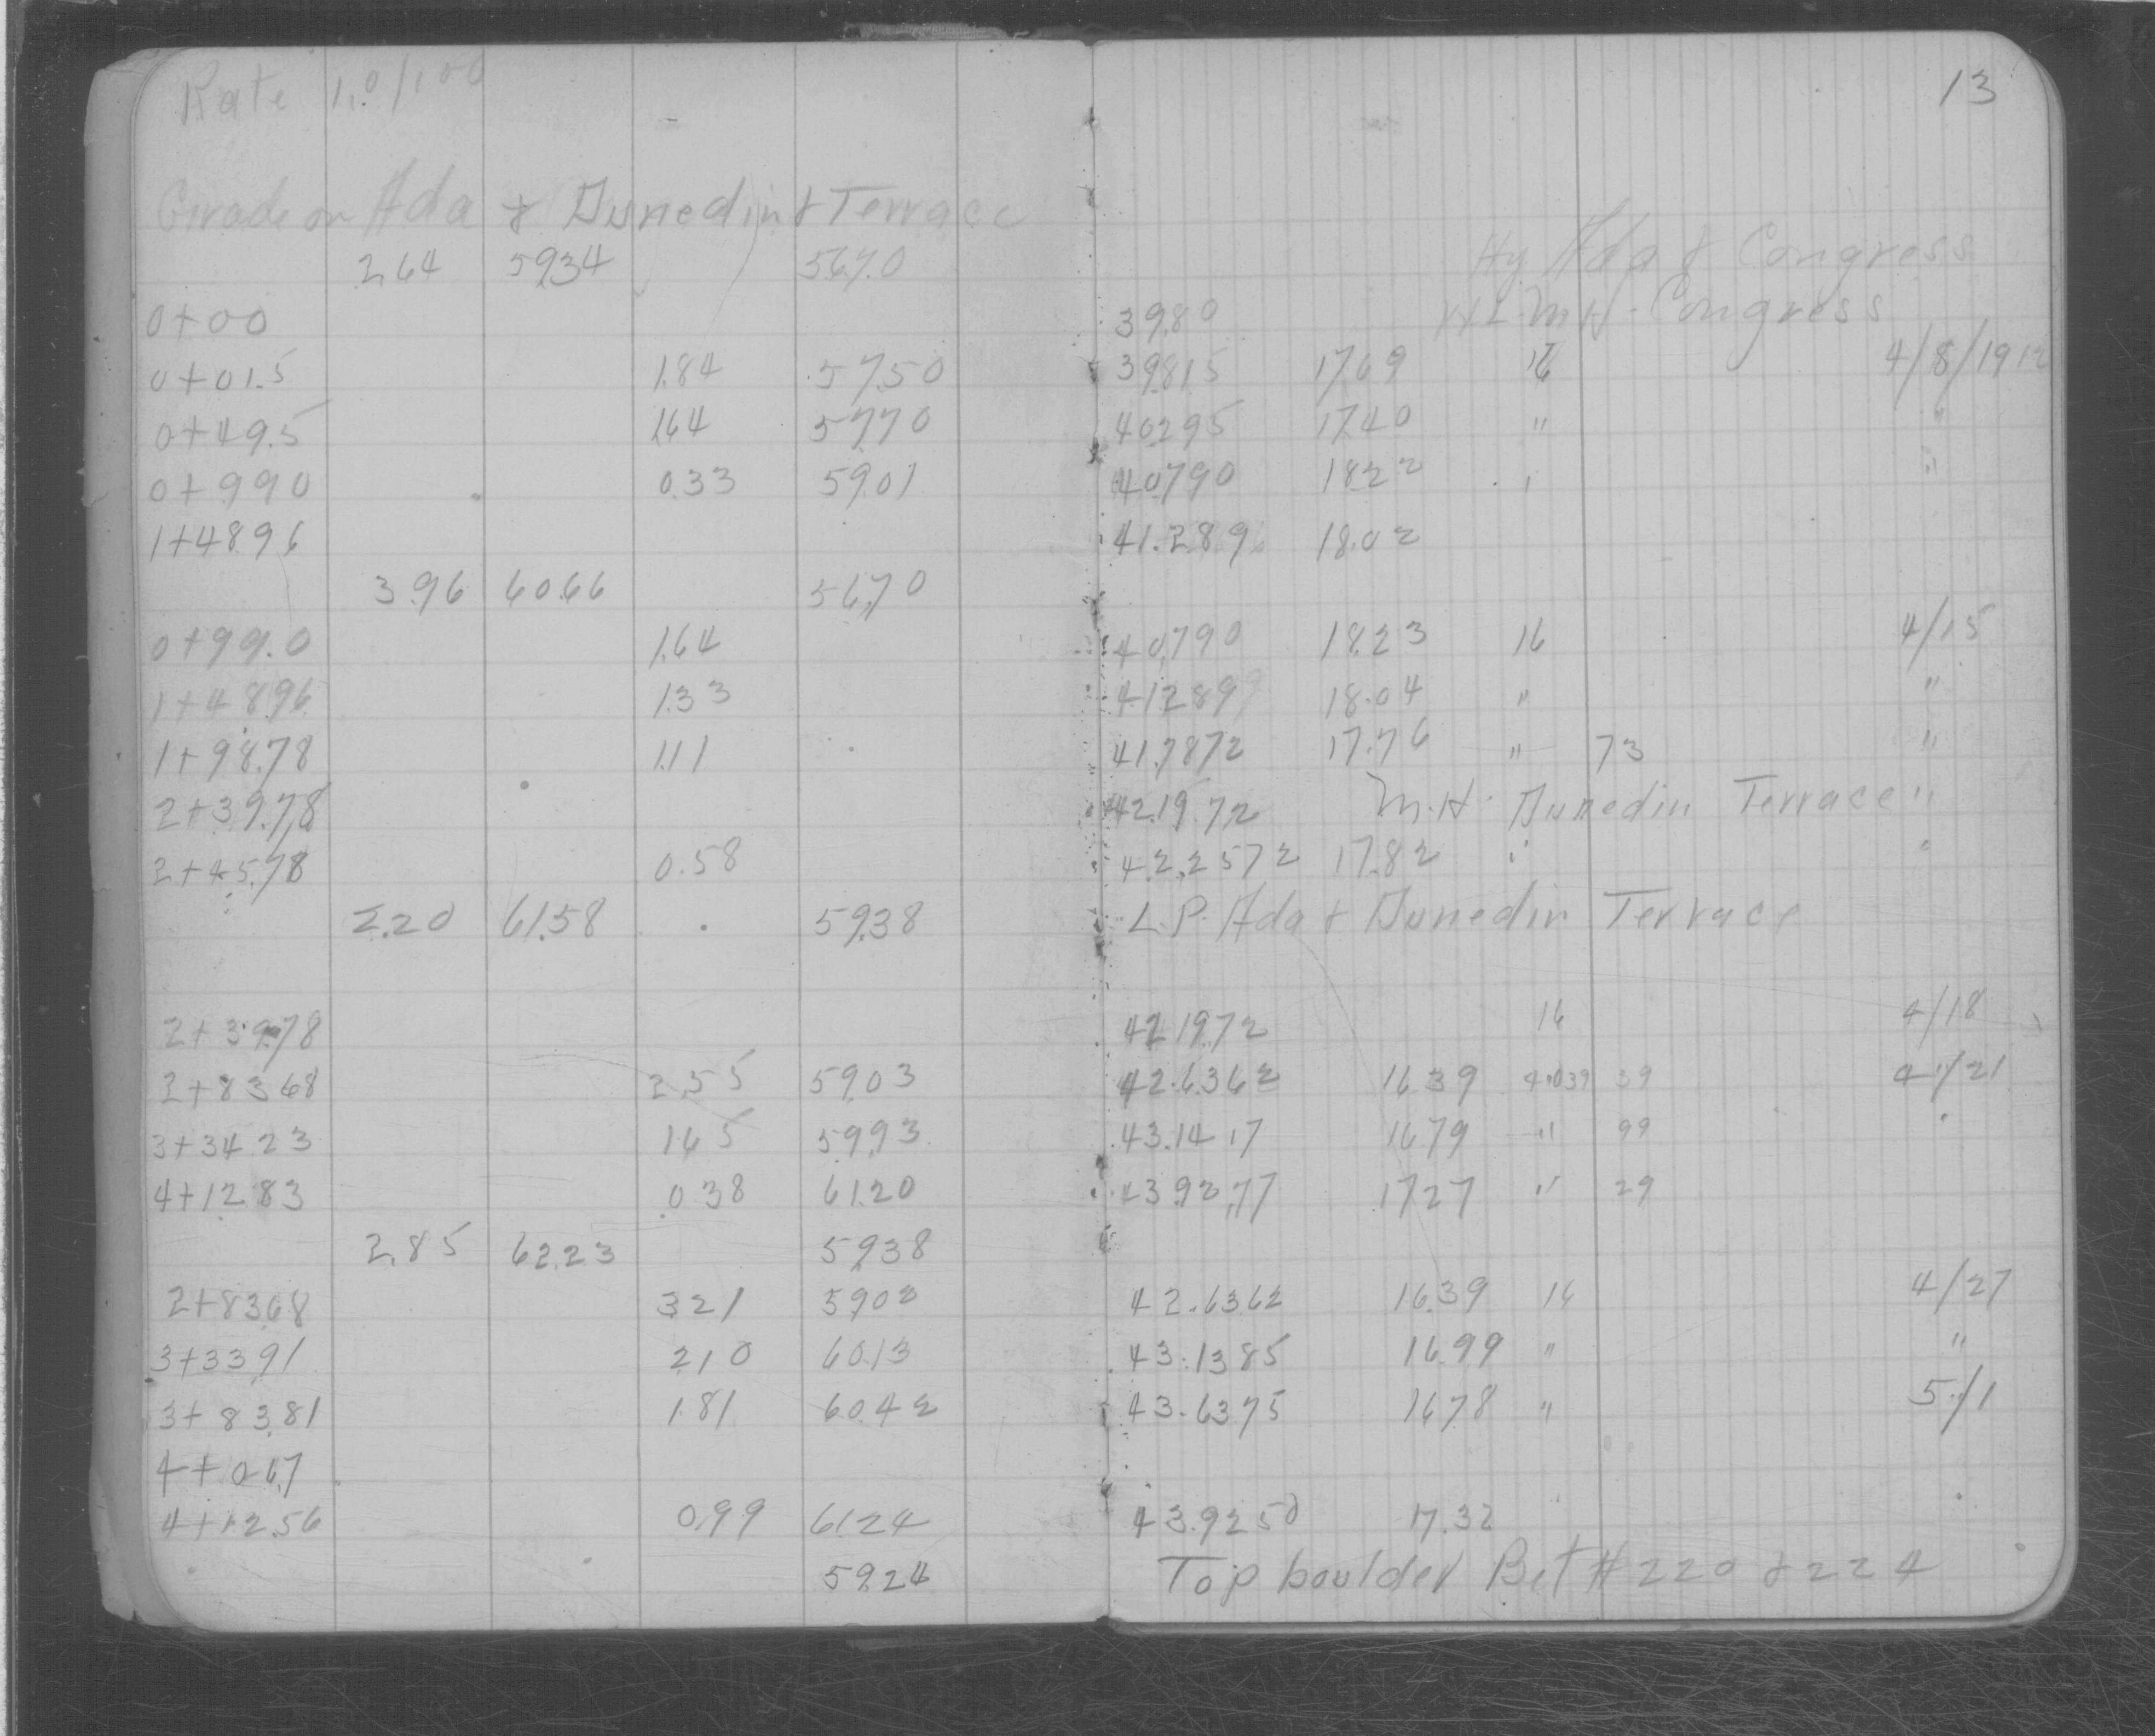 13
Rate 1.0/100
Grade on Ada & Dunedin & Terrace
2.64 59.34 56.70 Hy. Ada & Congress
0+00 39.80 M.H. Congress
0+01.5 1.84 57.50 39.815 17.69 16 4/8/1912
0+49.5 1.64 57.70 40.295 17.40 " "
0+99.0 0.33 59.01 40.790 18.22 " "
1+48.96 41.289 18.02
3.96 60.66 56.70
0+99.0 1.64 40.790 18.23 16 4/15
1+48.96 1.33 41.2899 18.04 " "
1+98.78 1.11 41.7872 17.76 " 73 "
2+39.78 42.1972 M.H. Dunedin Terrace "
2+45.78 0.58 42.2572 17.82 " "
2.20 61.58 59.38 L.P. Ada & Dunedin Terrace
2+39.78 42.1972 16 4/18
2+83.68 2.55 59.03 42.6362 16.39 39 4/21
3+34.23 1.65 59.93 43.1417 16.79 " 99 "
4+12.83 0.38 61.20 43.9277 17.27 " 29
2.85 62.23 59.38
2+83.68 3.21 59.02 42.6362 16.39 16 4/27
3+33.91 2.10 60.13 43.1385 16.99 " "
3+83.81 1.81 60.42 43.6375 16.78 " 5/1
4+06.7
4+12.56 0.99 61.24 43.9250 17.32 "
59.24 Top boulder Bet # 220 & 224